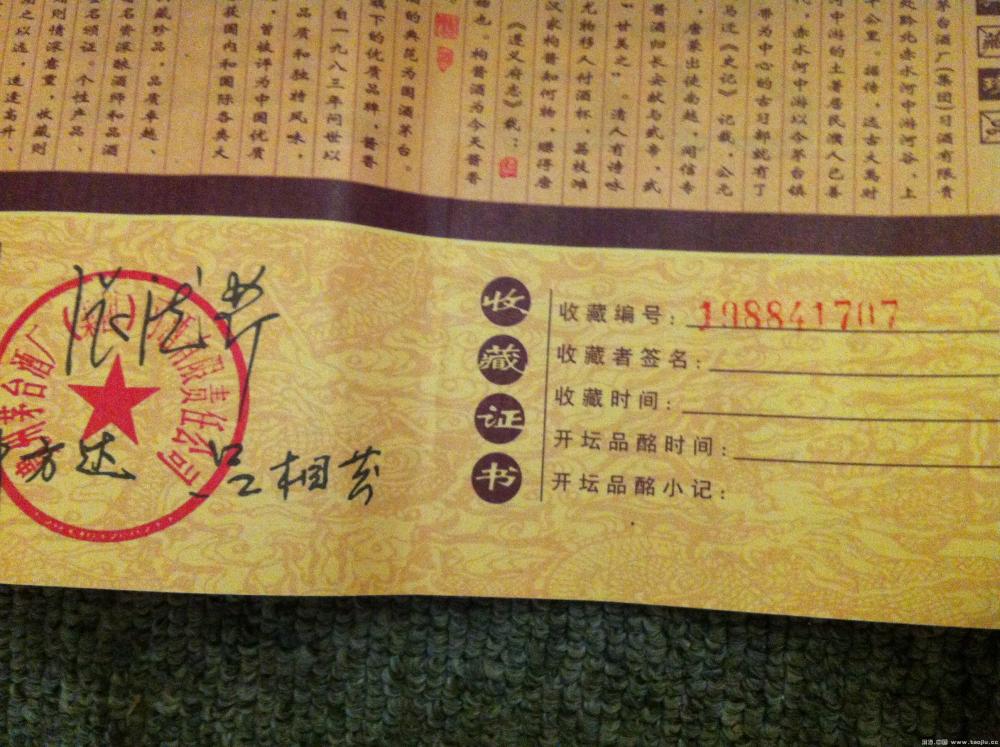 茅台酒厂(集团)习酒有限责
处黔北赤水河中游河谷,上
千公里。据传,远古大禹时
河中游的土著居民濮人已善
,赤水河中游以今茅台镇
带为中心的古习部就有了
马迁《史记》记载,公元
唐蒙出使南越,闻信专
酱酒归长安献与武帝,武
“甘美之”。清人有诗咏
尤物移人付酒杯,荔枝滩
汉家枸酱知何物,赚得唐
《遵义府志》载:
枸酱酒为今天酱香
酒的典范为国酒茅台。
旗下的优质品牌,酱香
自一九八三年问世以
品质和独特风味,
,曾被评为中国优质
获国内和国际各类大
藏珍品,品质卓越、
名资深酿酒师和品酒
名颁证。个性产品、
则情深意重,收藏则
之以远,连连高升、
收藏证书
收藏编号:198841707
收藏者签名:
收藏时间:
开坛品酩时间:
开坛品酩小记:
茅台酒厂(集团)习酒有限责任公司
吕相芬
www.taojiu.cc